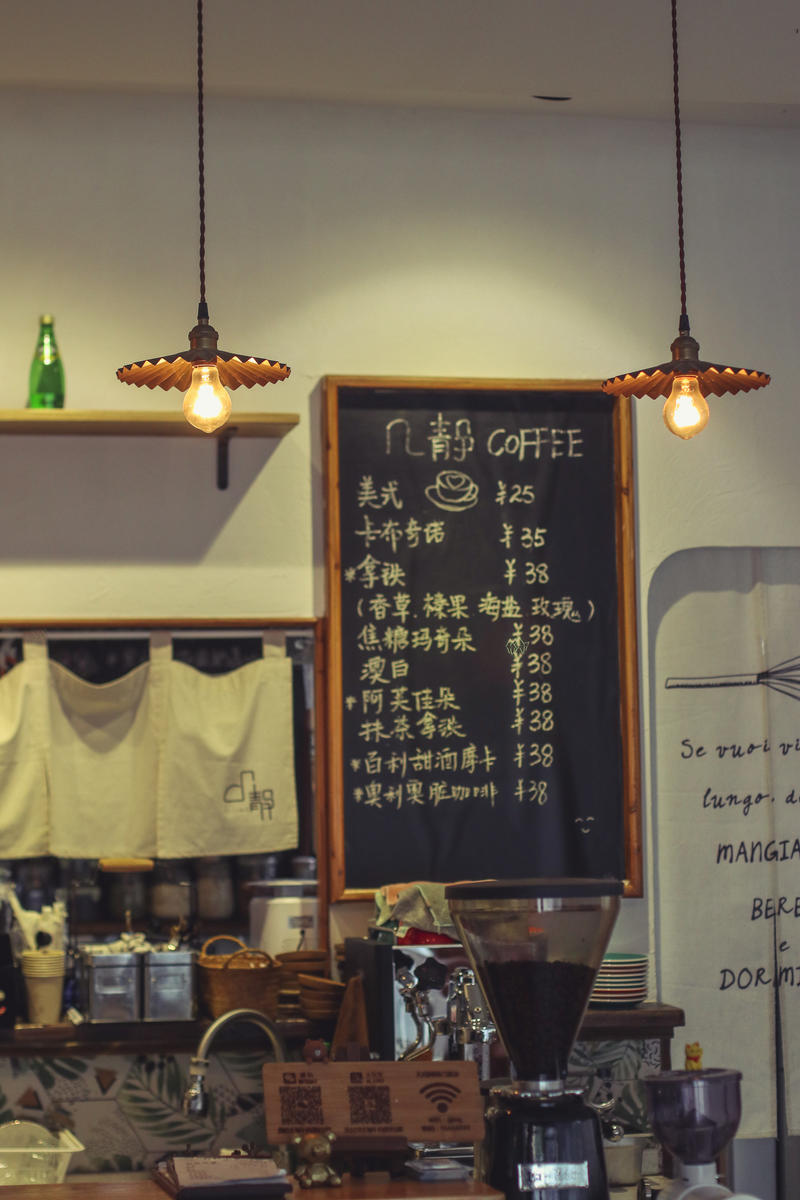 几静 COFFEE
美式 ¥25
卡布奇诺 ¥35
*拿铁 ¥38
(香草.榛果 海盐 玫瑰)
焦糖玛奇朵 ¥38
澳白 ¥38
*阿芙佳朵 ¥38
抹茶拿铁 ¥38
*百利甜酒摩卡 ¥38
*奥利奥脏咖啡 ¥38
几静
Se vuoi vi
lungo. d
MANGIA
BERE
e
DORMI